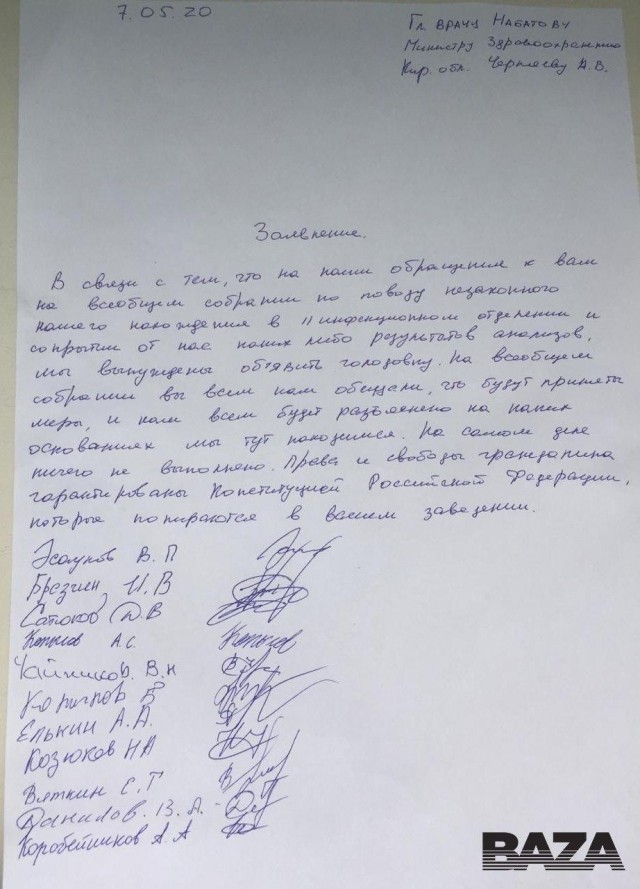 7.05.20
Гл. врачу Набатову
Министру Здравоохранению
Кир. обл. Черняеву А.В.
Заявление.
В связи с тем, что на наши обращения к вам
на всеобщем собрании по поводу незаконного
нашего нахождения в II инфекционном отделении и
сокрытии от нас каких либо результатов анализов,
мы вынуждены объявить голодовку. На всеобщем
собрании вы всем нам обещали, что будут приняты
меры, и нам всем будет разъяснено на каких
основаниях мы тут находимся. На самом деле
ничего не выполнено. Права и свободы гражданина
гарантированы Конституцией Российской Федерации,
которые попираются в вашем заведении.
В. П
И. В
Сатюков Д. В
Копылов А. С. Копылов
Чайников. В. Н
Б
Елькин А. А.
Козюков НА
Вяткин С. Г
Данилов. В. А.
Коробейников А. А
BAZA